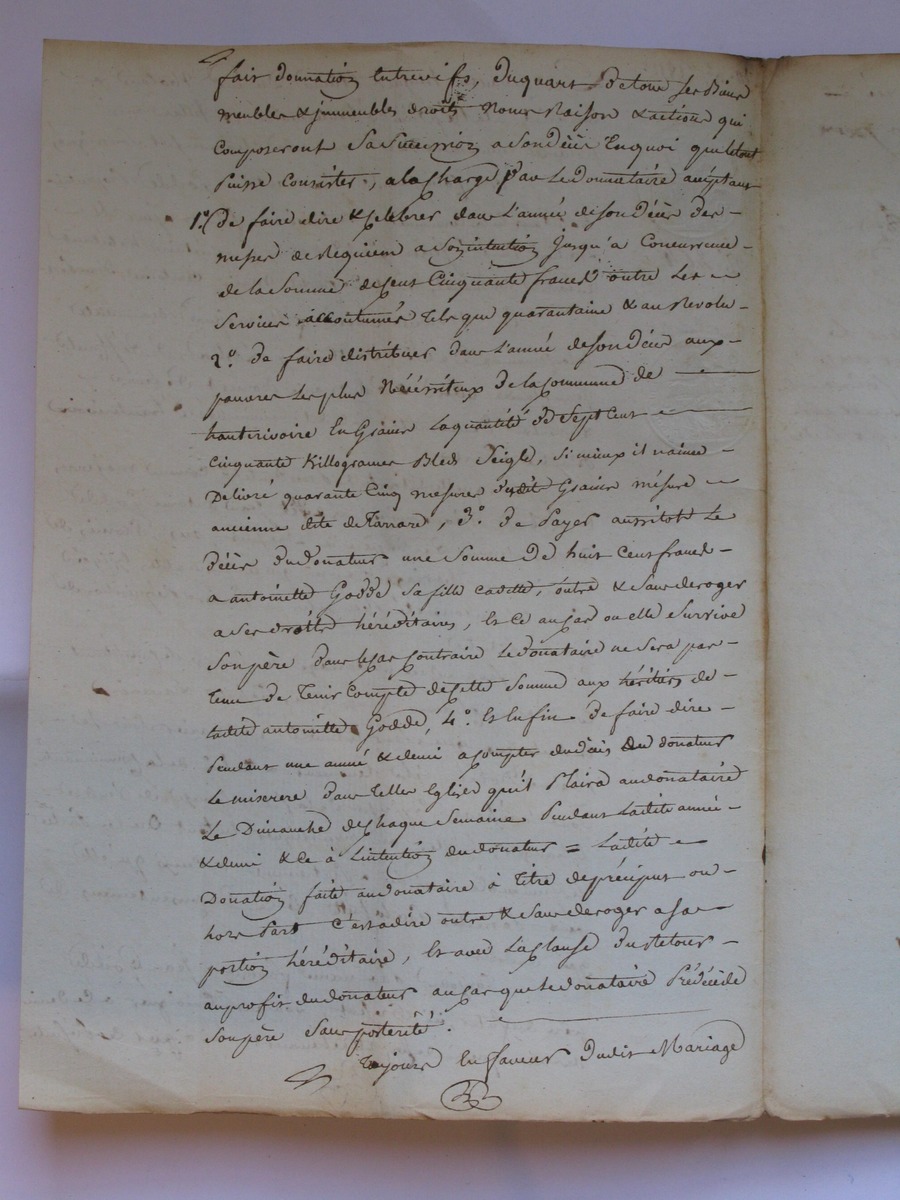 fait donnation entrevifs, du quart de tous ses Biens
meubles & jmmeubles droits Noms Raison & actions qui
composeront Sa Succession a Son Décès En quoi que le tout
Puisse Consister, a la Charge Par Le Donnataire acceptant
1.° De faire dire & Celebrer dans L'année de son Décès des
messes de Requiem a Son intention Jusqu'a Concurrence
de la Somme de Cent Cinquante francs outre Les
Services accoutumés Tels que quarantaine & au Revolu
2.° de faire distribuer dans L'année de son Décès aux
pauvres Les plus Nécéssiteux de la Commune de
hauterivoire En Grains La quantité de Sept Cent
Cinquante Killogrames Bled Seigle, Si mieux il n'aime
Delivré quarante Cinq mesures dudit Grains mésure
ancienne dite de Tarrare, 3.° de Payer aussitot Le
Décès du Donateur une Somme De huit Cent francs
a antoinette Godde Sa fille Cadette, outre & Sans deroger
a Ses droits héréditaires, Et Ce au Cas ou elle Survive
Son père dans le Cas Contraire Le donataire ne Sera pas
Tenu de Tenir Compte de Cette Somme aux héritiers de
Ladite antoinette Godde, 4.° Et Enfin de faire dire
Pendant une année & demi a Compter du décès du donateur
Le miserere dans Telles Eglises qu'il Plaira au donataire
Le Dimanche de Chaque Semaine Pendant Ladite année
& demi & Ce à L'intention du donateur = Ladite
Donation faite au donataire à Titre de préciput ou
hors Part C'est a dire outre & Sans deroger a Sa
portion héréditaire, Et avec La Clause du Retour
au profit du donateur au Cas que Le donataire Prédécède
Son père Sans posterité.
Toujours En faveur dudit Mariage